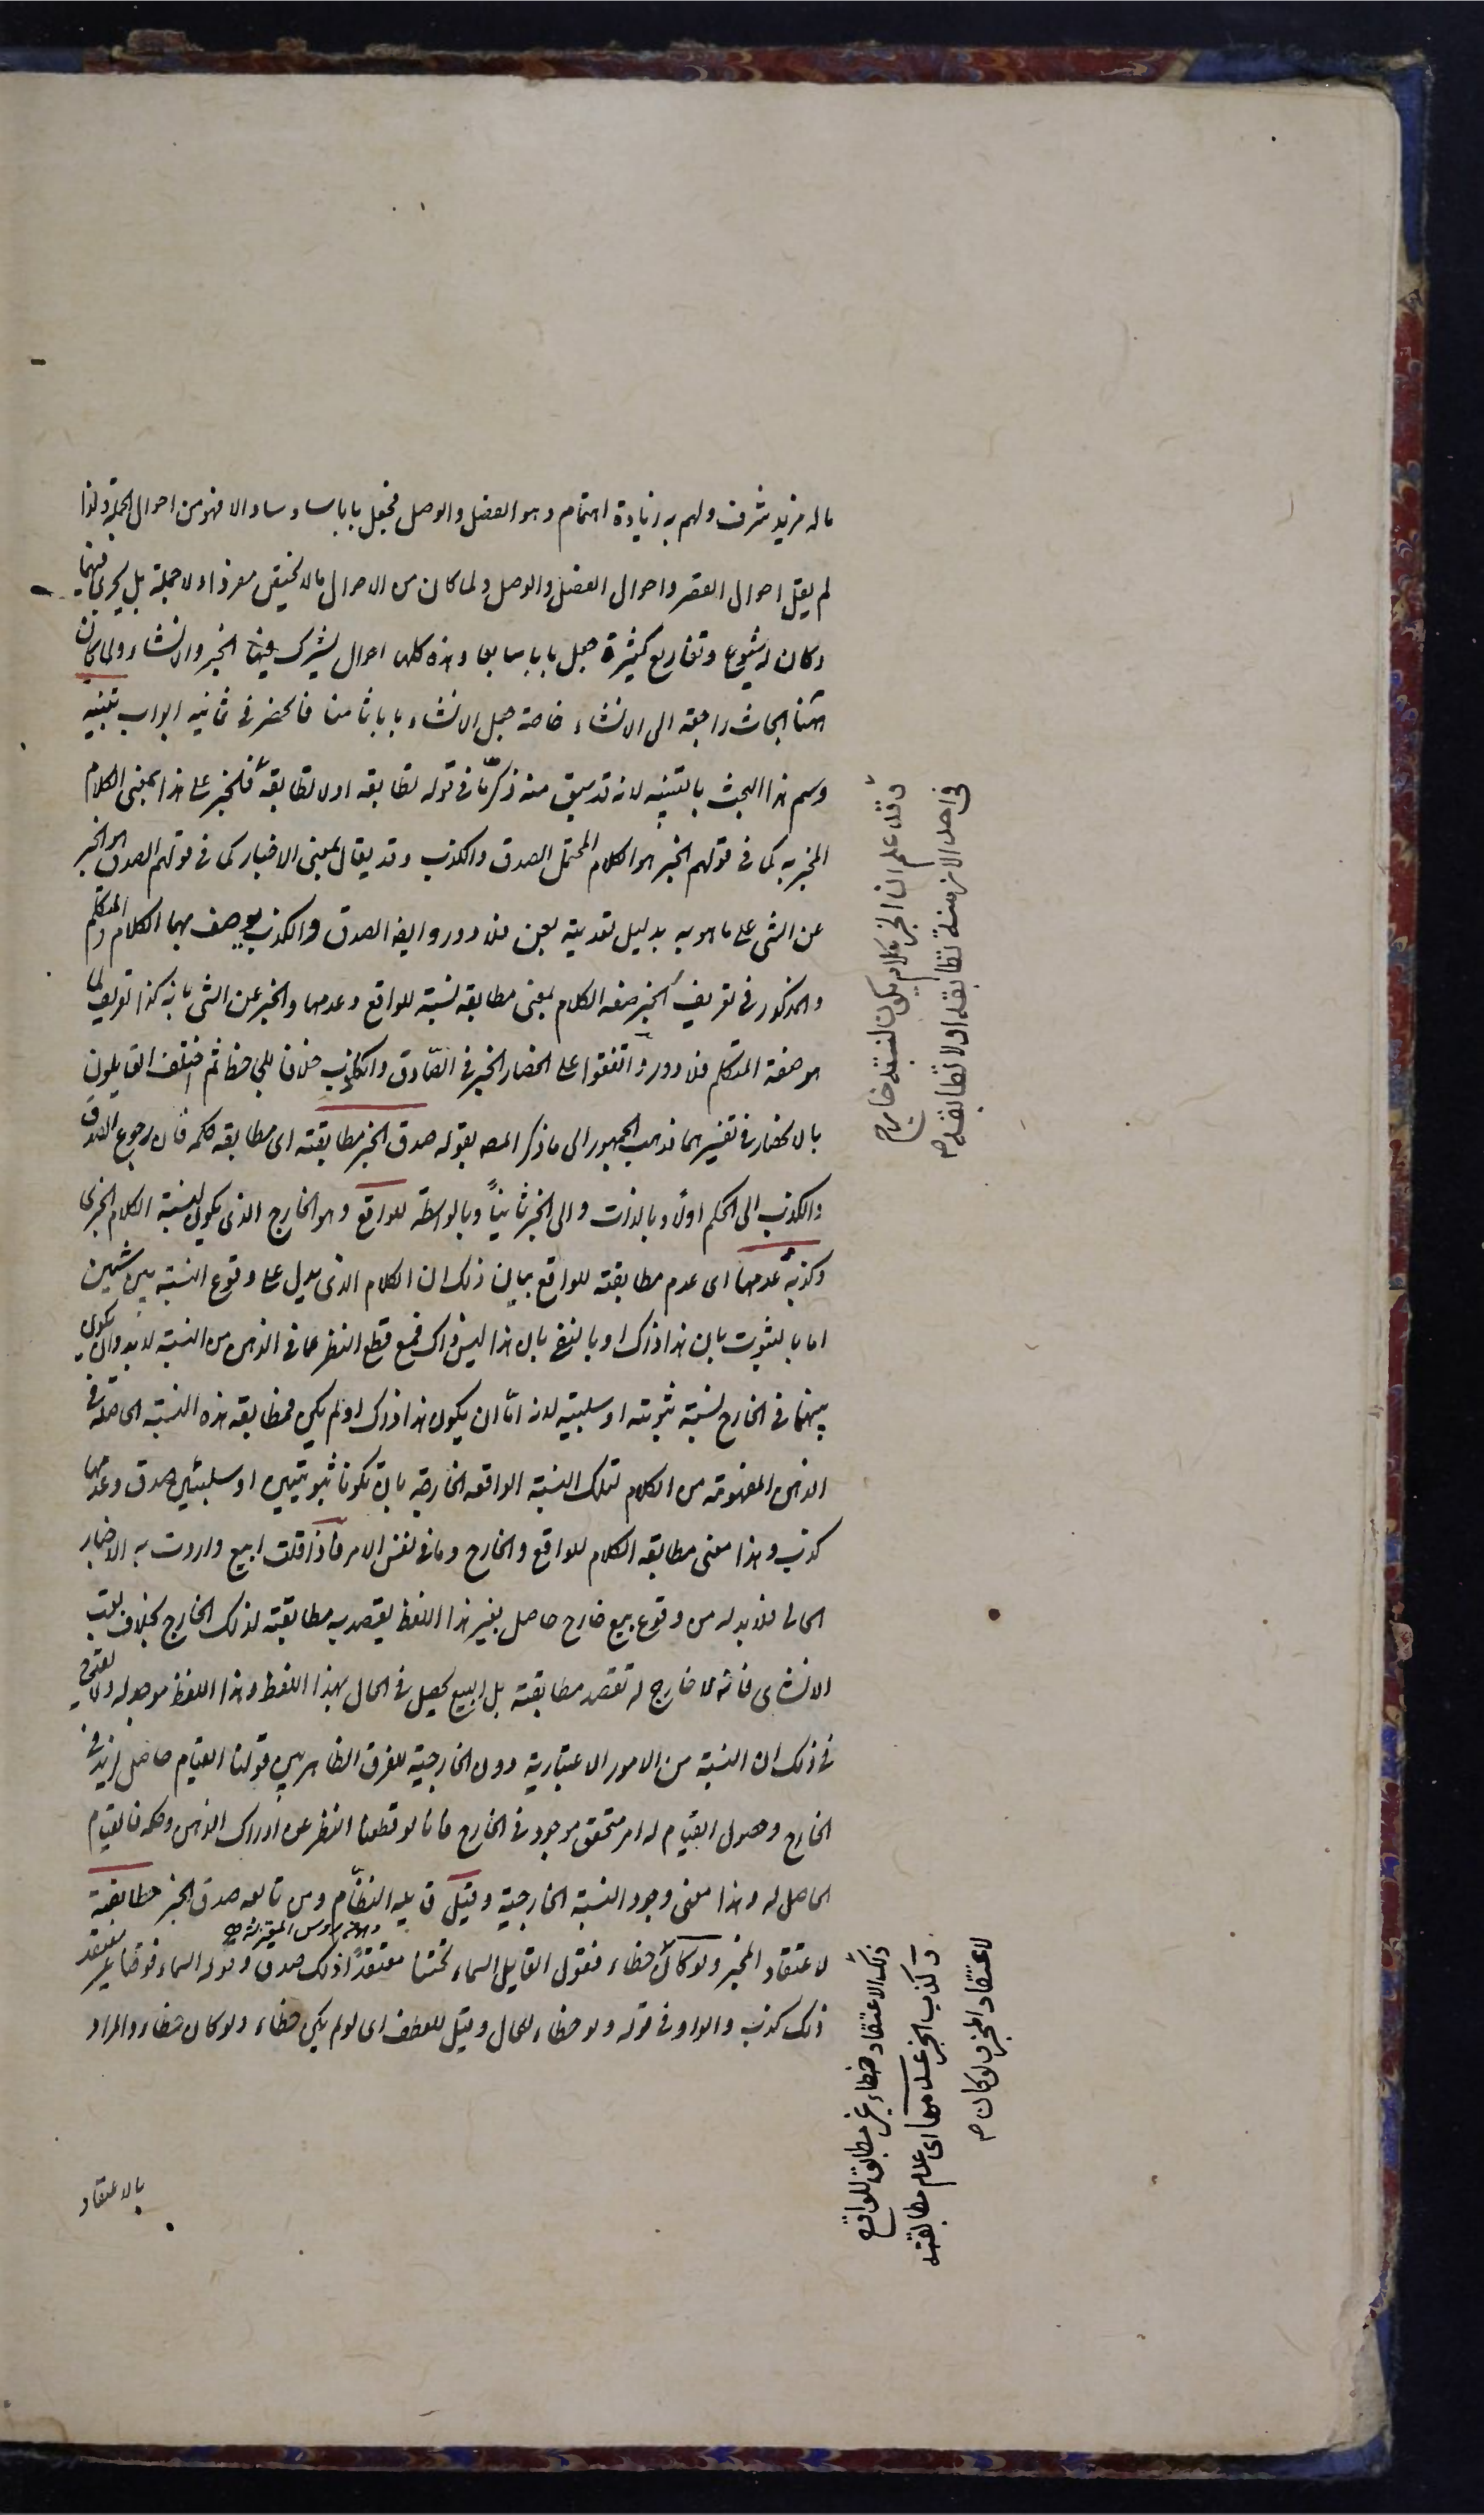 ما له مزيد شرف ولهم به زيادة اهتمام وهو الفصل والوصل فجعل بابا سادسا والا فهو من احوال الجملة ولذا
لم يقل احوال القصر واحوال الفصل والوصل ولما كان من الاحوال ما لا يختص مفردا ولا جملة بل يجرى فيهما
وكان له شيوع وتفاريع كثيرة جعل بابا سابعا وهذه كلها احوال يشترك فيها الخبر والانشاء ولما كان
هنا ابحاث راجعة الى الانشاء خاصة جعل الانشاء بابا ثامنا فانحصر فى ثمانيه ابواب تنبيه
وسم هذا البحث بالتنبيه لانه قد سبق منه ذكر ما فى قوله تطابقه اولا تطابقه فالخبر على هذا بمعنى الكلام
المخبر به كما فى قولهم الخبر هو الكلام المحتمل الصدق والكذب وقد يقال بمعنى الاخبار كما فى قولهم الصدق هو الخبر
عن الشى على ما هو به بدليل تعديته بعن فلا دور وايضا الصدق والكذب يوصف بهما الكلام والمتكلم
والمذكور فى تعريف الخبر صفه الكلام بمعنى مطابقه نسبته للواقع وعدمها والخبر عن الشى بانه كذا تعريف لما
هو صفة المتكلم فلا دور واتفقوا على انحصار الخبر فى الصادق والكاذب خلافا للجاحظ ثم اختلف القايلون
بالانحصار فى تفسيرهما فذهب الجمهور الى ما ذكره المصه بقوله صدق الخبر مطابقته اى مطابقه حكمه فان رجوع الصدق
والكذب الى الحكم اولا وبالذات والى الخبر ثانيا وبالواسطه للواقع وهو الخارج الذى يكون لنسبة الكلام الخبرى
وكذبه عدمها اى عدم مطابقته للواقع بيان ذلك ان الكلام الذى يدل على وقوع النسبة بين شيئين
اما بالثبوت بان هذا ذاك او بالنفى بان هذا ليس ذاك فمع قطع النظر عما فى الذهن من النسبة لا بد وان يكون
بينهما فى الخارج نسبة ثبوتيه او سلبيه لانه اما ان يكون هذا ذاك او لم يكن فمطابقه هذه النسبة الحاصلة فى
الذهن المفهومه من الكلام لتلك النسبة الواقعه الخارجية بان تكونا ثبوتيتين او سلبيتين صدق وعدمها
كذب وهذا معنى مطابقه الكلام للواقع والخارج وما فى نفس الامر فاذا قلت ابيع واردت به الاخبار
الحالى فلا بد له من وقوع بيع خارج حاصل بغير هذا اللفظ يقصد به مطابقته لذلك الخارج بخلاف بعت
الانشاى فانه لا خارج له تقصد مطابقته بل البيع يحصل فى الحال بهذا اللفظ وهذا اللفظ موجد له ولا يقدح
فى ذلك ان النسبة من الامور الاعتبارية دون الخارجية للفرق الظاهر بين قولنا القيام حاصل لزيد فى
الخارج وحصول القيام له امر متحقق موجود فى الخارج فانا لو قطعنا النظر عن ادراك الذهن وحكمه فالقيام
الحاصل له وهذا معنى وجود النسبة الخارجية وقيل قايله النظام ومن تابعه صدق الخبر مطابقته
لاعتقاد المخبر ولو كان خطاء فقول القايل السماء تحتنا معتقدا ذلك صدق وقوله السماء فوقنا غير معتقد
ذلك كذب والواو فى قوله ولو خطاء للحال وقيل للعطف اى لو لم يكن خطاء ولو كان خطاء والمراد
بالاعتقاد
وقد علم ان الخبر كلام يكون لنسبته خارج
فى احد الازمنة تطابقه اولا تطابقه م
ذلك الاعتقاد خطاء غير مطابق للواقع
وكذب الخبر عدمها اى عدم مطابقته
لاعتقاد المخبر ولو كان م